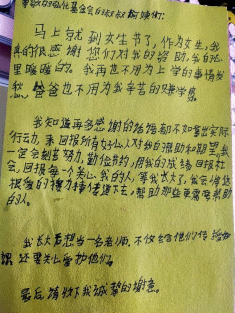 尊敬的 基金会的叔叔阿姨们:
马上就到女生节了,作为女生,我
真的很感谢您们对我的资助,我的心
里暖暖的。我再也不用为上学的事情发
愁,爸爸也不用为我辛苦的赚学费。
我知道再多感谢的话语都不如拿出实际
行动,来回报所有好心人对我的帮助和期望,我
一定会刻苦努力,勤俭节约,用我的成绩回报社
会,回报每一个关心我的人,等我长大了,我会将
这 棒传递下去,帮助那些更需要帮助
的人。
我长大后想当一名老师,不仅给他们传授知
识 还要关心爱护他们。
最后请收下我诚挚的谢意。